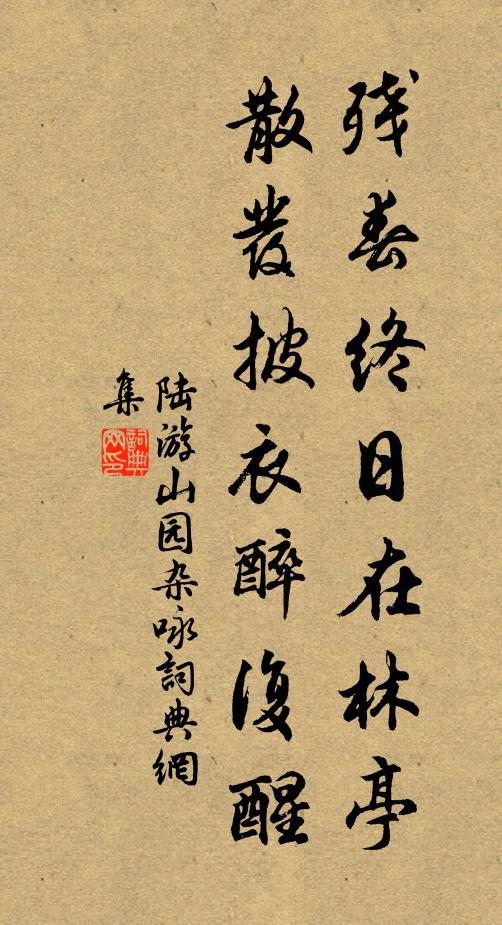 残春终日在林亭
散发披衣醉复醒
陆游山园杂咏詞典網
集
詞典
网印